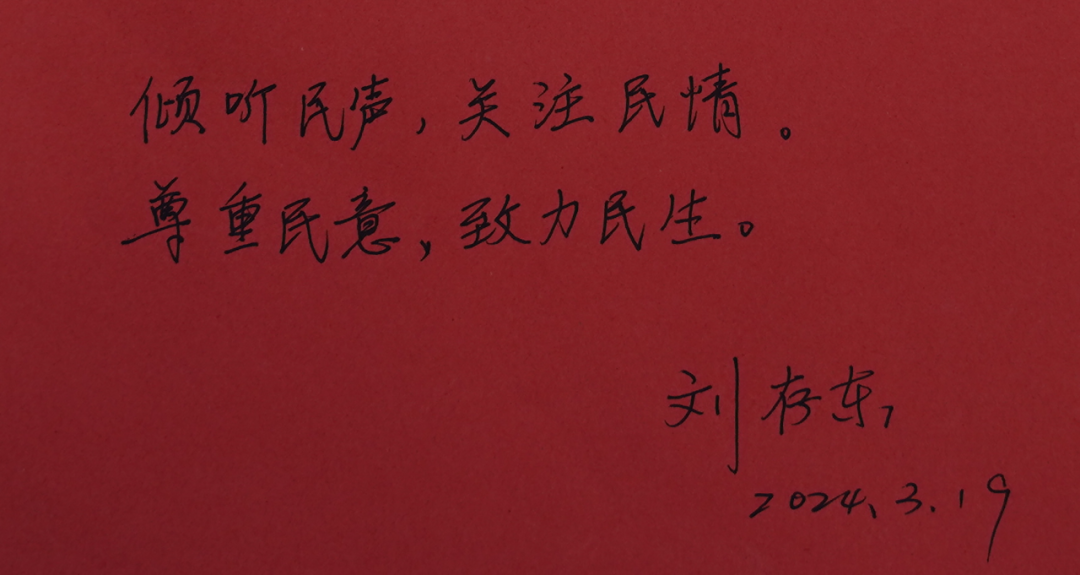 倾听民声，关注民情。
尊重民意，致力民生。
刘存东，
2024、3.19